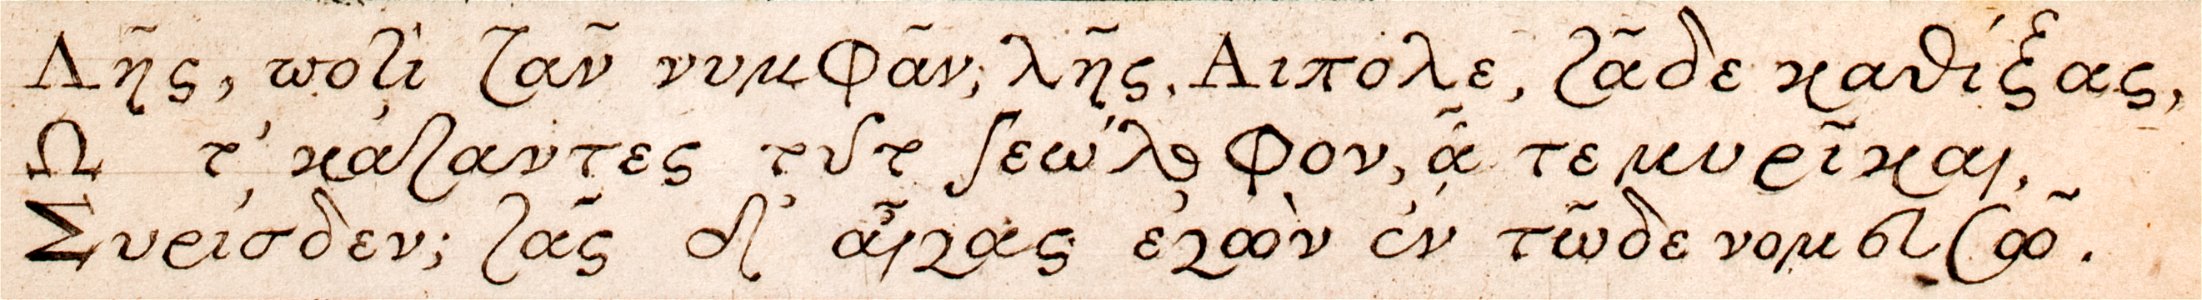 Λῆς, ποτὶ τᾶν νυμφᾶν, λῆς, Αιπολε, τᾶδε καθίξας,
Ω τ' κάταντες τȣτ γεώλοφον, ἅ τε μυρῖκαι,
Συρίσδεν; τᾶς δ' αἶγας ἐγὼν ἐν τῶδε νομευσῶ.